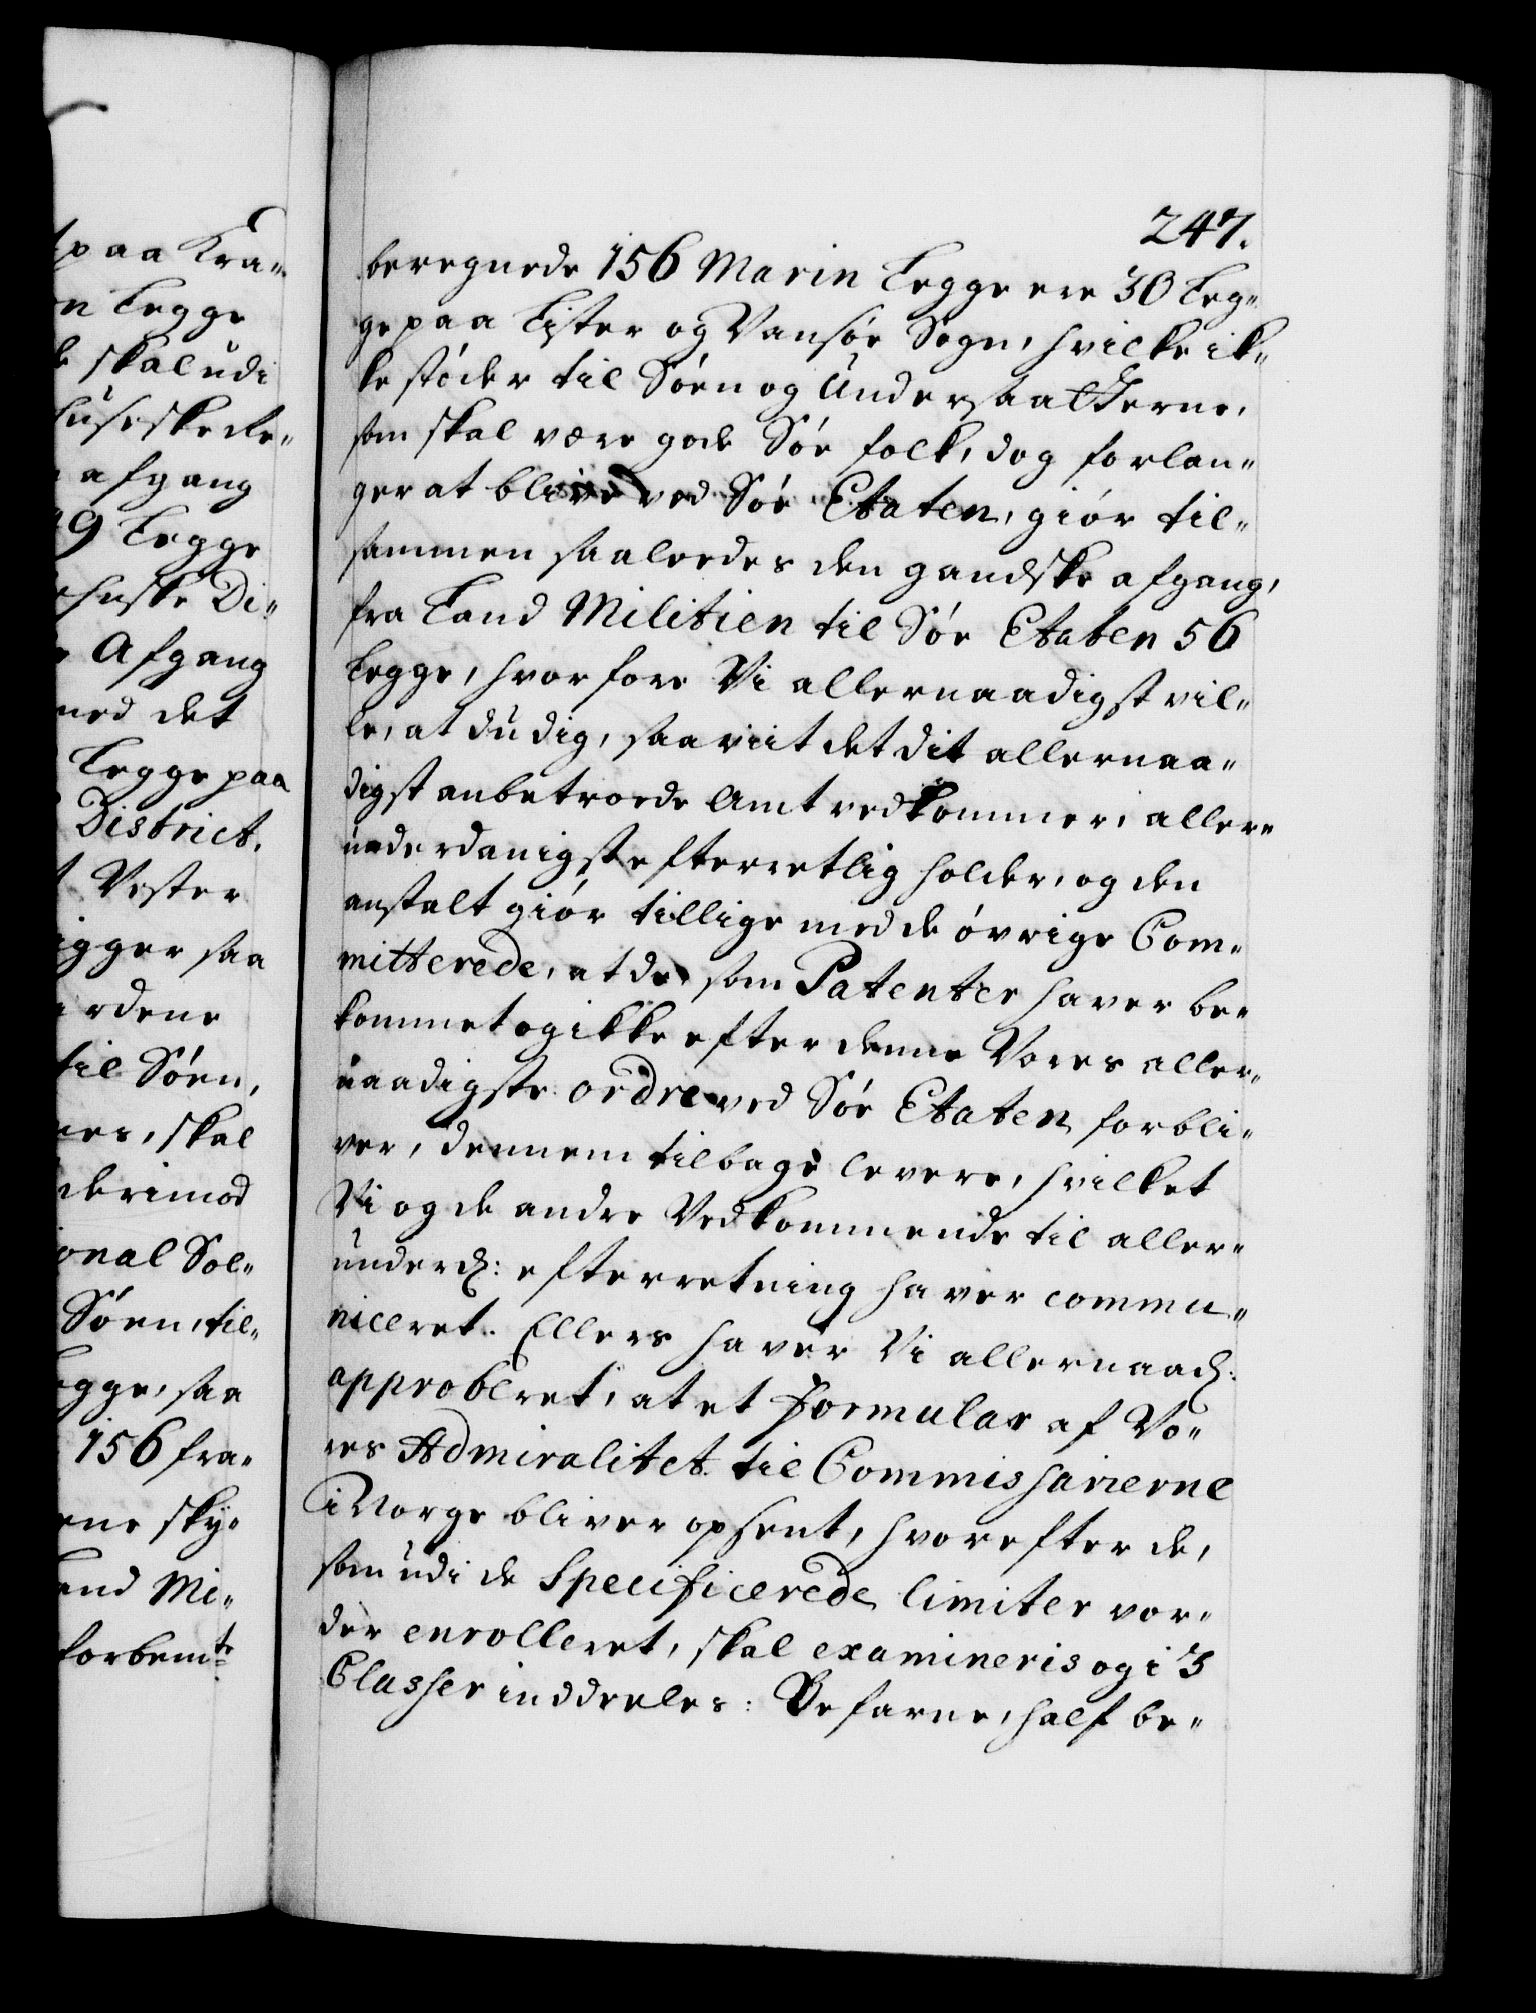 paa Kra-
n Legge
skal udi
huseskede-
afgang
9 Legge
huske Di-
Afgang
med det
Legge paa
District.
Vester
igger saa
rdene
til Söen,
nes, skal
derimod
onal Sol-
Söen, til-
egge, saa
156 fra-
ene sky-
and Mi-
forbemte
247.
beregnede 156 Marin Legge ere 30 Leg-
ge paa Lister og Vansöe Sogn, hvilke ik-
ke stöder til Söen og Undersaatterne,
som skal være gode Söe folk, dog forlan-
ger at blive ved Söe Etaten, giör til-
sammen saaledes den gandske afgang,
fra Land Militien til Söe Etaten 56
Legge, hvorfore Vi allernaadigst vil-
le, at du dig, saaviit det dit allernaa-
digst anbetroede Amt vedkommer, aller-
underdanigst efterretlig holder, og den
anstalt giör tillige med de övrige Com-
mitterede, at de som Patenter haver be-
kommet og ikke efter denne Vores aller-
naadigste ordre ved Söe Etaten forbli-
ver, dennem tilbage levere, hvilket
Vi og de andre Vedkommende til aller-
underd: efterretning haver commu-
niceret. Ellers haver Vi allernaad:
approberet, at et Formular af Vo-
res Admiralitet til Commissarierne
i Norge bliver opsent, hvorefter de,
som udi de Specificerede limiter vor-
der enrolleret, skal examineris og i 3
Classer inddeeles: Befarne, half be-